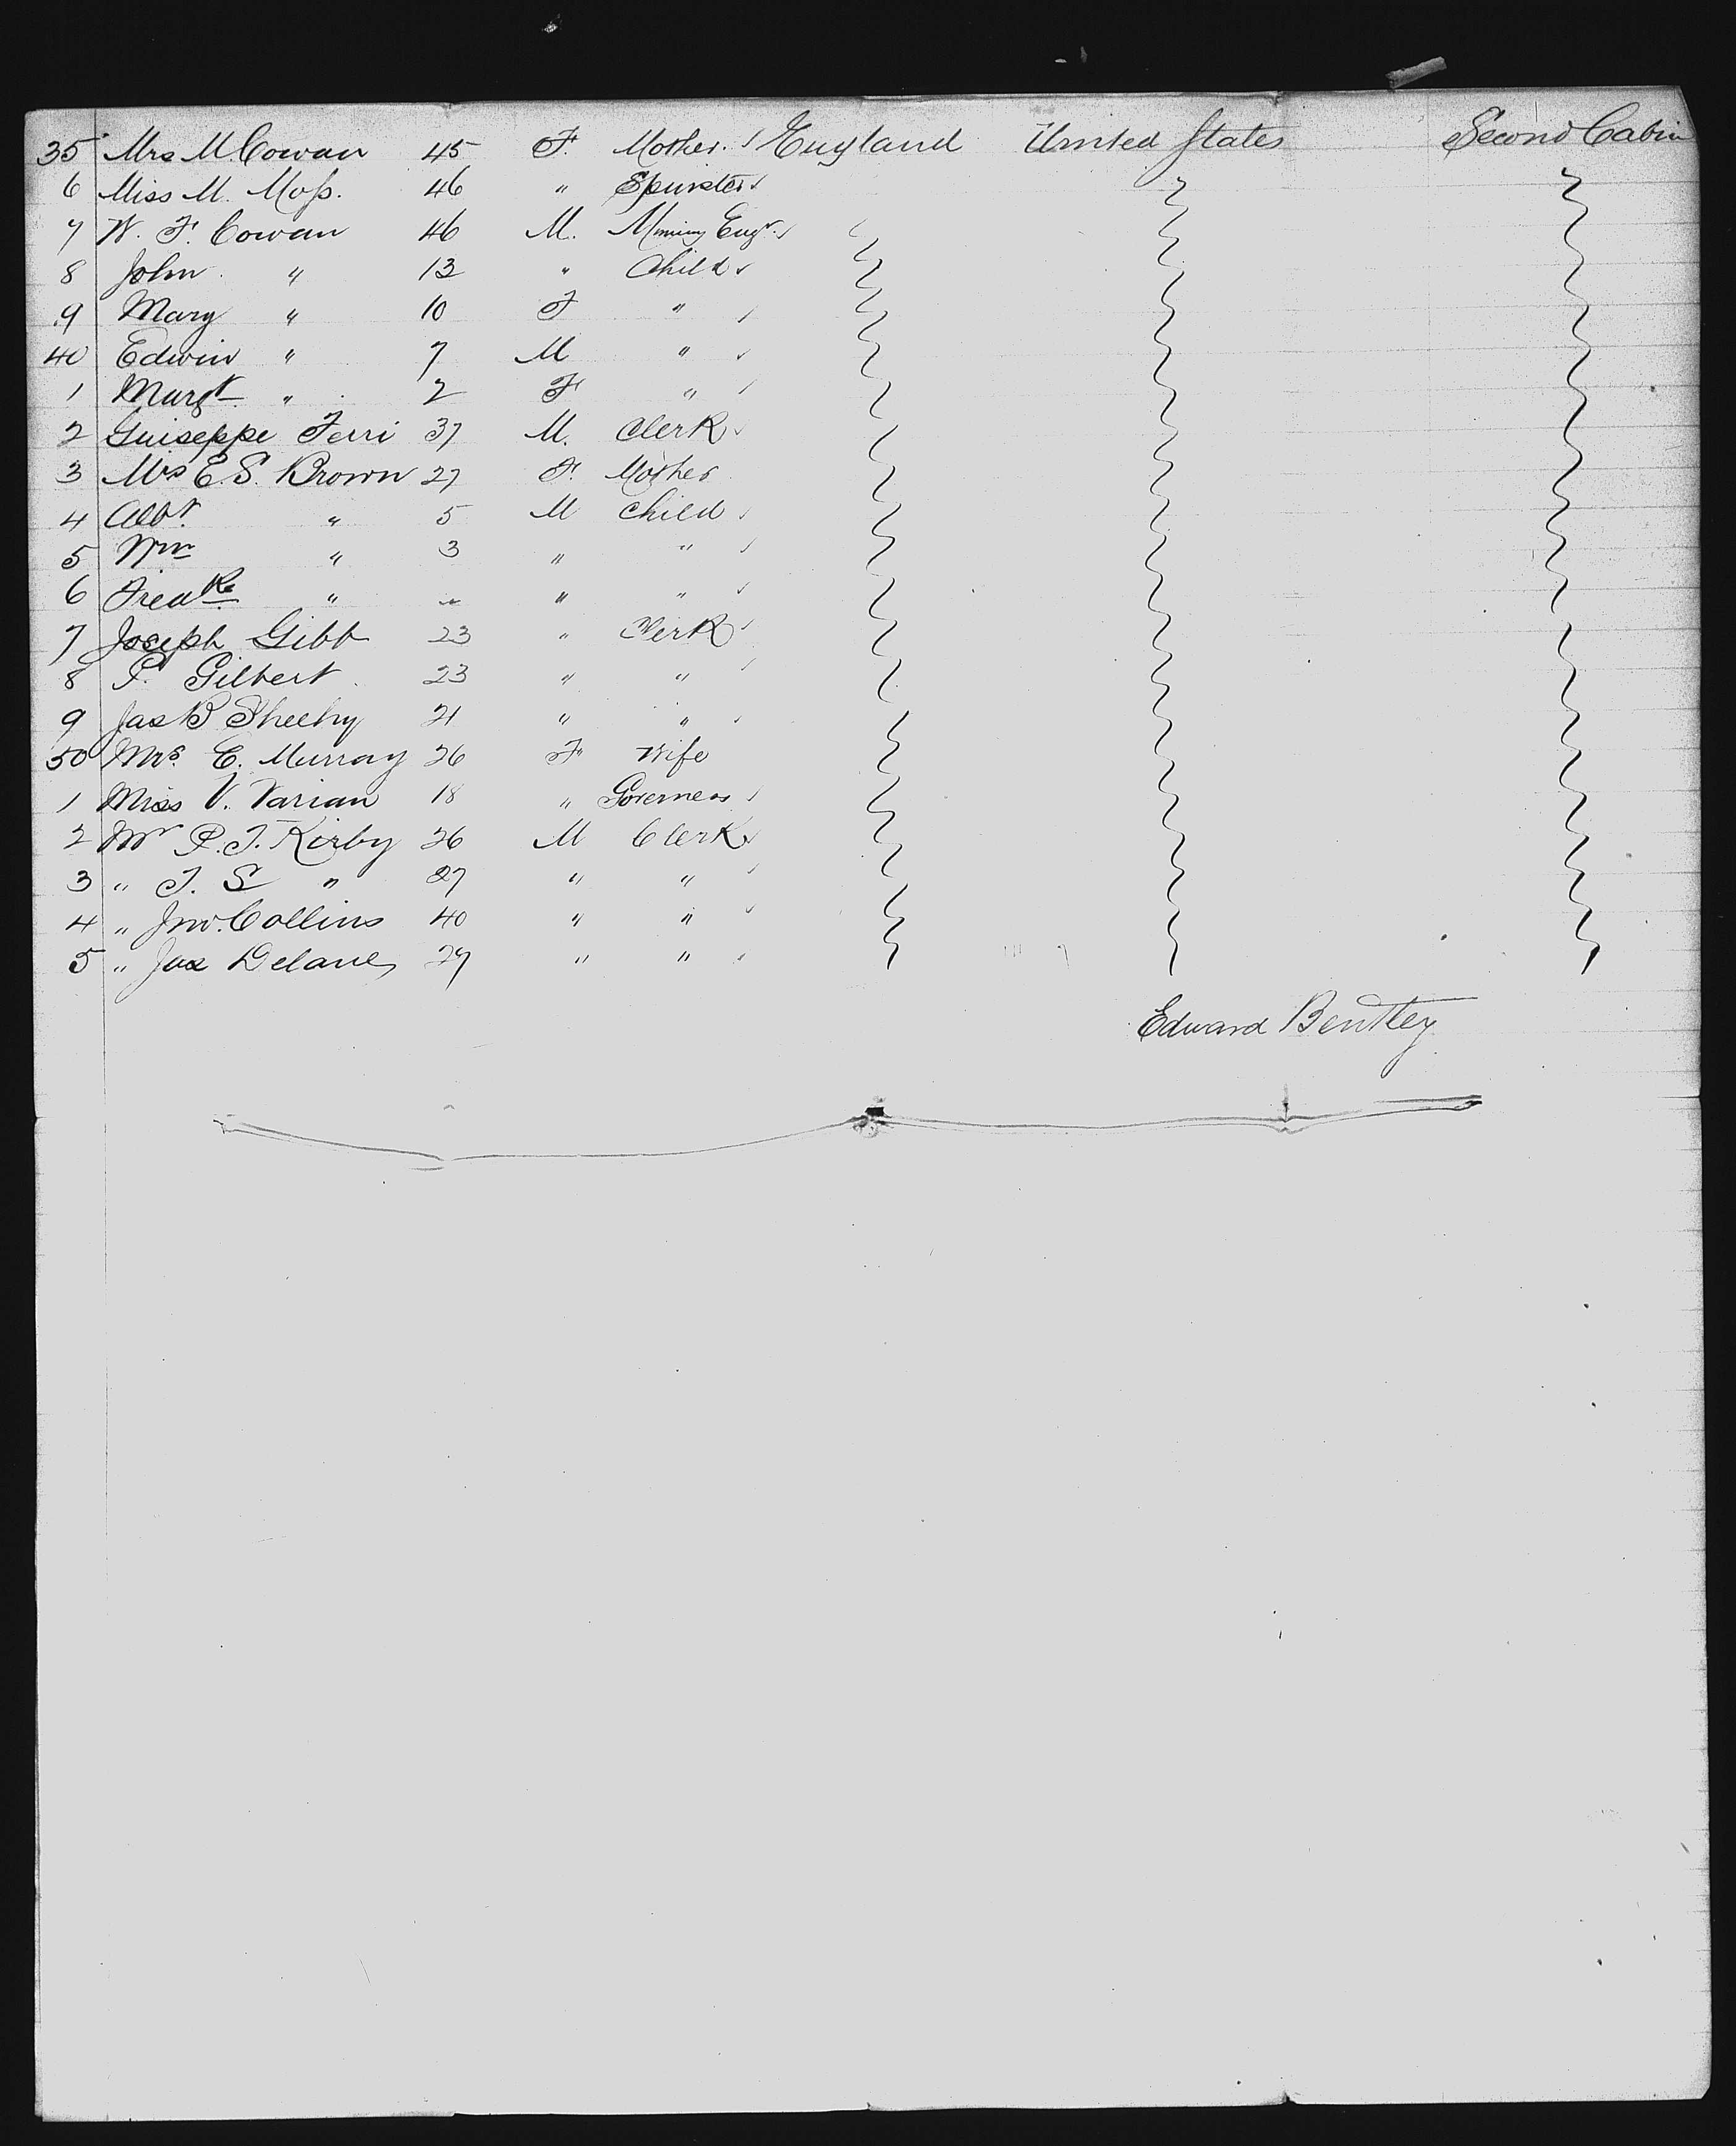 35 Mrs M Cowan 45 F. Mother. England United States Second Cabin
6 Miss M. Moſs. 46 " Spinster
7 W. F. Cowan 46 M. Minning Engr.
8 John " 13 " Child
9 Mary " 10 F "
40 Edwin " 7 M "
1 Margt " 2 F "
2 Guiseppe Ferri 37 M. Clerk
3 Mrs E. S. Brown 27 F. Mother
4 Albt. " 5 M Child
5 Wm " 3 " "
6 Fredk " " "
7 Joseph Gibb 23 " Clerk
8 P. Gilbert 23 " "
9 Jas B Sheehy 21 " "
50 Mrs. E. Murray 26 F Wife
1 Miss V. Varian 18 " Governess
2 Mr P. J. Kirby 26 M Clerk
3 " J. S " 27 " "
4 " Jno. Collins 40 " "
5 " Jas Delaney 29 " "
Edward Bentley